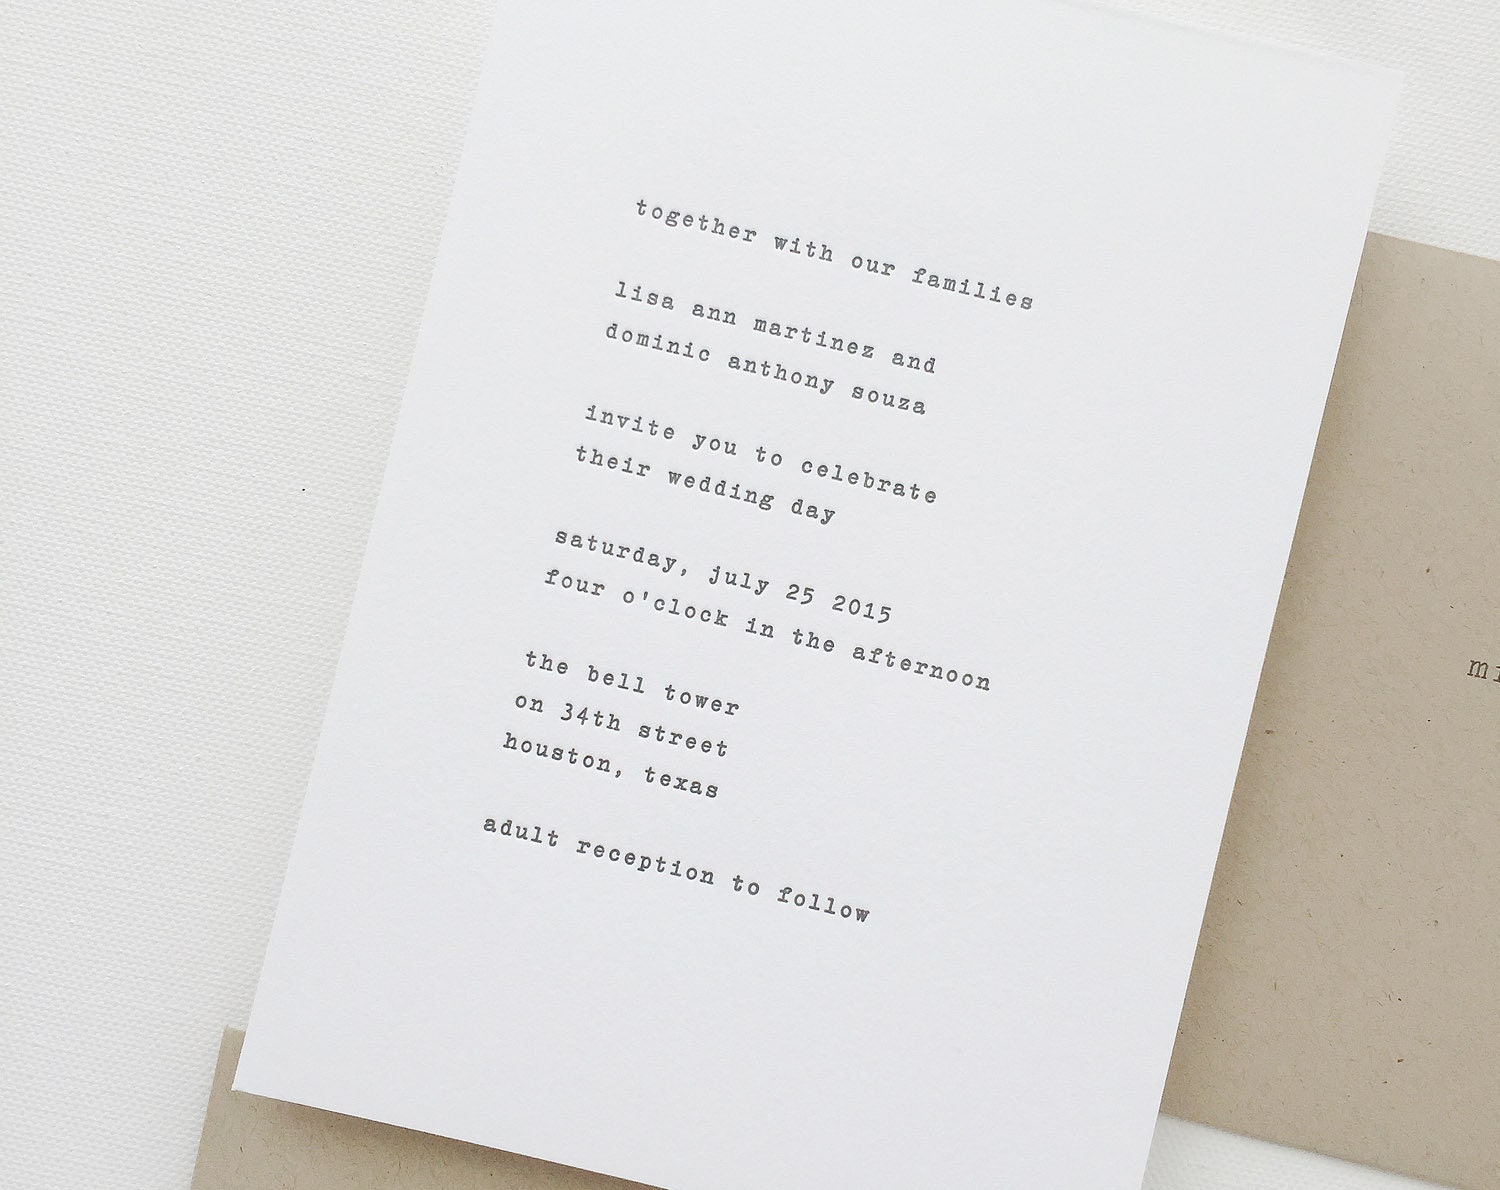 together with our families
lisa ann martinez and
dominic anthony souza
invite you to celebrate
their wedding day
saturday, july 25 2015
four o'clock in the afternoon
the bell tower
on 34th street
houston, texas
adult reception to follow